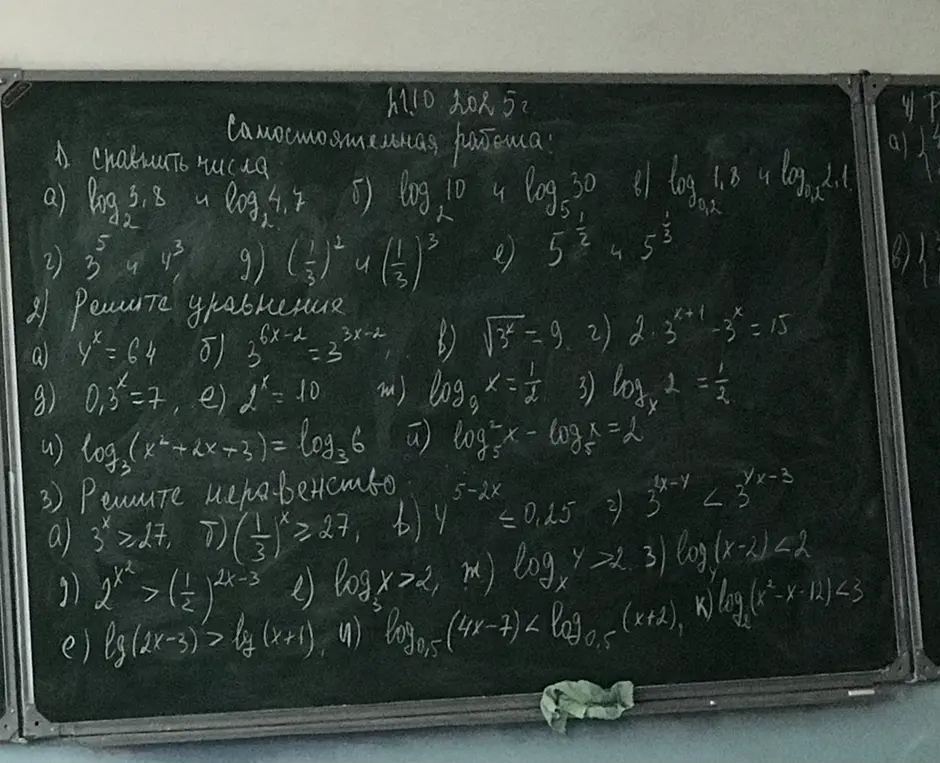 21.10 2025г
Самостоятельная работа:
1) сравнить числа
а) log₂3,8 и log₂4,7 б) log₂10 и log₅30 в) log₀,₂1,8 и log₀,₂2,1
г) 3⁵ и 4³, д) (1/3)² и (1/3)³ е) 5^(1/2) и 5^(1/3)
2) Решите уравнения
а) 4^x = 64 б) 3^(6x-2) = 3^(3x-2), в) √(3^x) = 9, г) 2·3^(x+1) - 3^x = 15
д) 0,3^x = 7, е) 2^x = 10 ж) log₉ x = 1/2 з) log_x 2 = 1/2
и) log₃(x²+2x+3) = log₃6 й) log₅²x - log₅x = 2
3) Решите неравенство
а) 3^x ≥ 27, б) (1/3)^x ≥ 27, в) 4^(5-2x) ≤ 0,25 г) 3^(2x-4) < 3^(4x-3)
д) 2^(x²) > (1/2)^(2x-3) е) log₃x > 2, ж) log_x 4 > 2. з) log₄(x-2) < 2
е) lg(2x-3) > lg(x+1), и) log₀,₅(4x-7) < log₀,₅(x+2), к) log₂(x²-x-12) < 3
4)
а) {
в) {